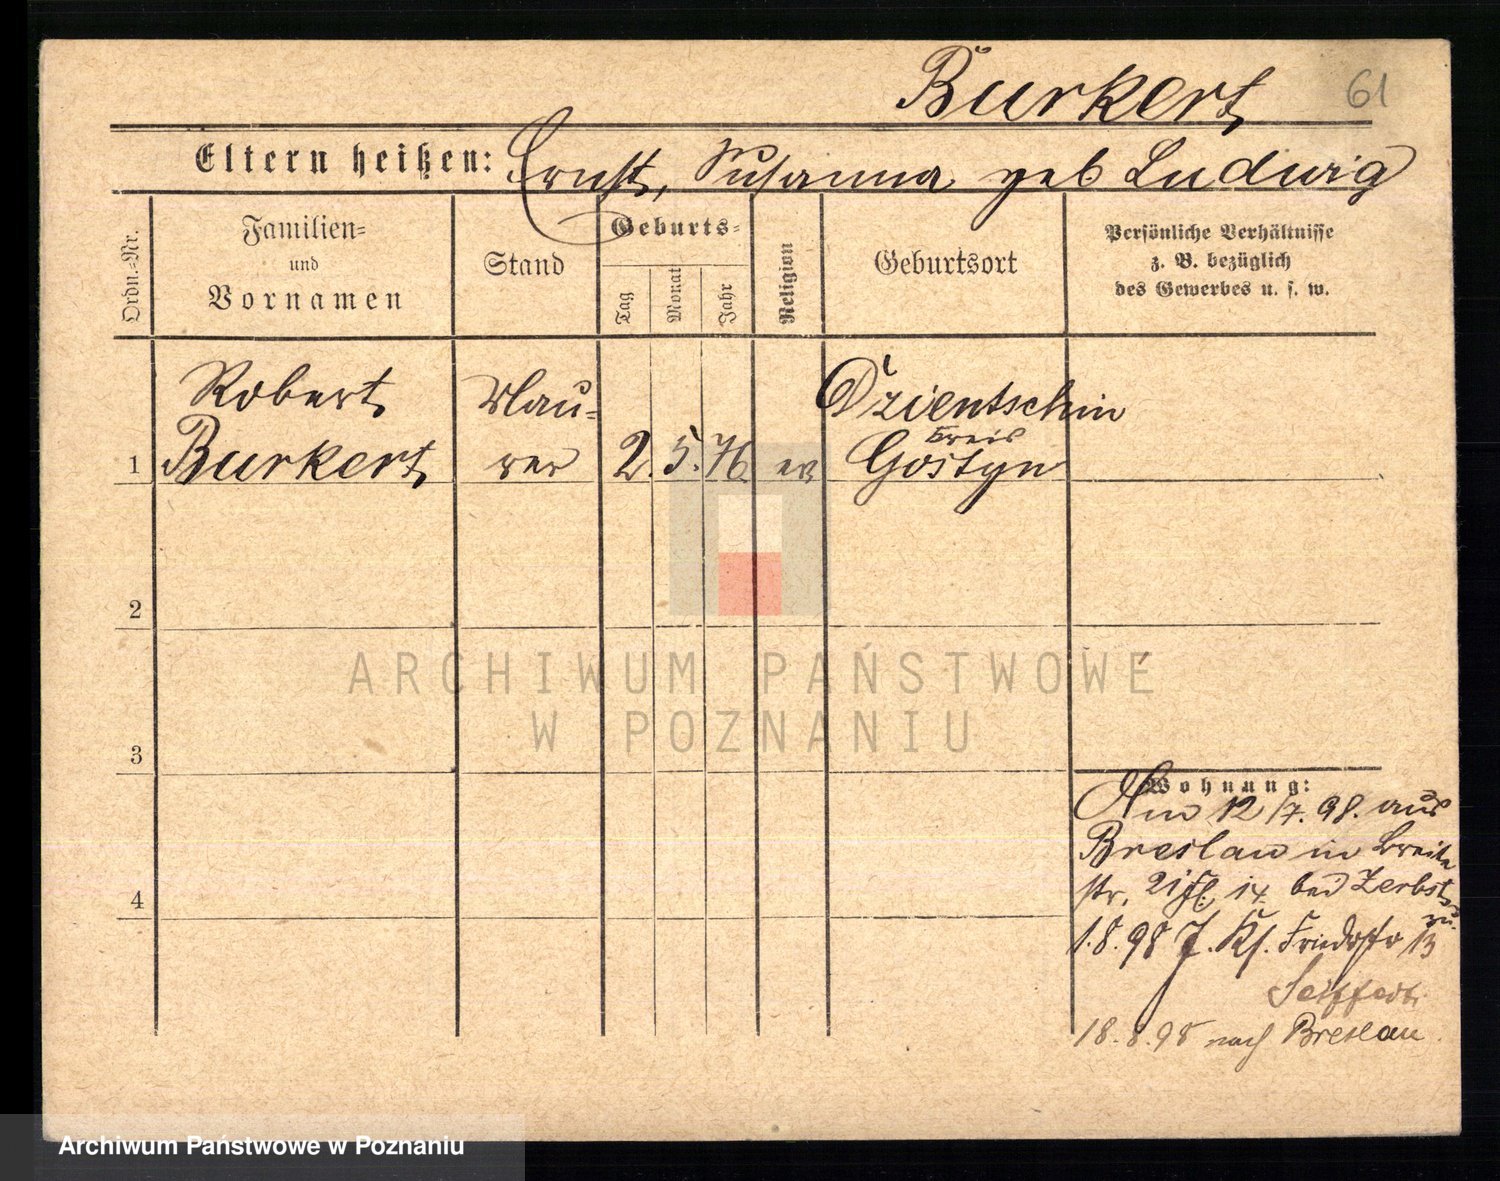 Burkert 61
Eltern heißen: Ernst, Susanna geb Ludwig
Ordn.-Nr.
Familien-
und
Vornamen
Stand
Geburts-
Tag
Monat
Jahr
Religion
Geburtsort
Persönliche Verhältnisse
z. B. bezüglich
des Gewerbes u. s. w.
1
Robert
Burkert
Mau-
rer
2. 5. 76 ev
Dzientschin
Kreis
Gostyn
2
3
4
Wohnung:
Am 12/7. 98. aus
Breslau in Breite
str. 21 14 bei Zerbst
1.8.98 13
Seiffert
18.8.98 nach Breslau
ARCHIWUM PAŃSTWOWE
W POZNANIU
Archiwum Państwowe w Poznaniu